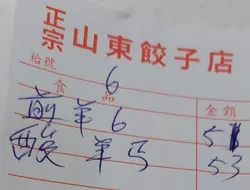 正宗山東餃子店
枱號 6
食品 金額
煎羊6 51
酸羊丐 53